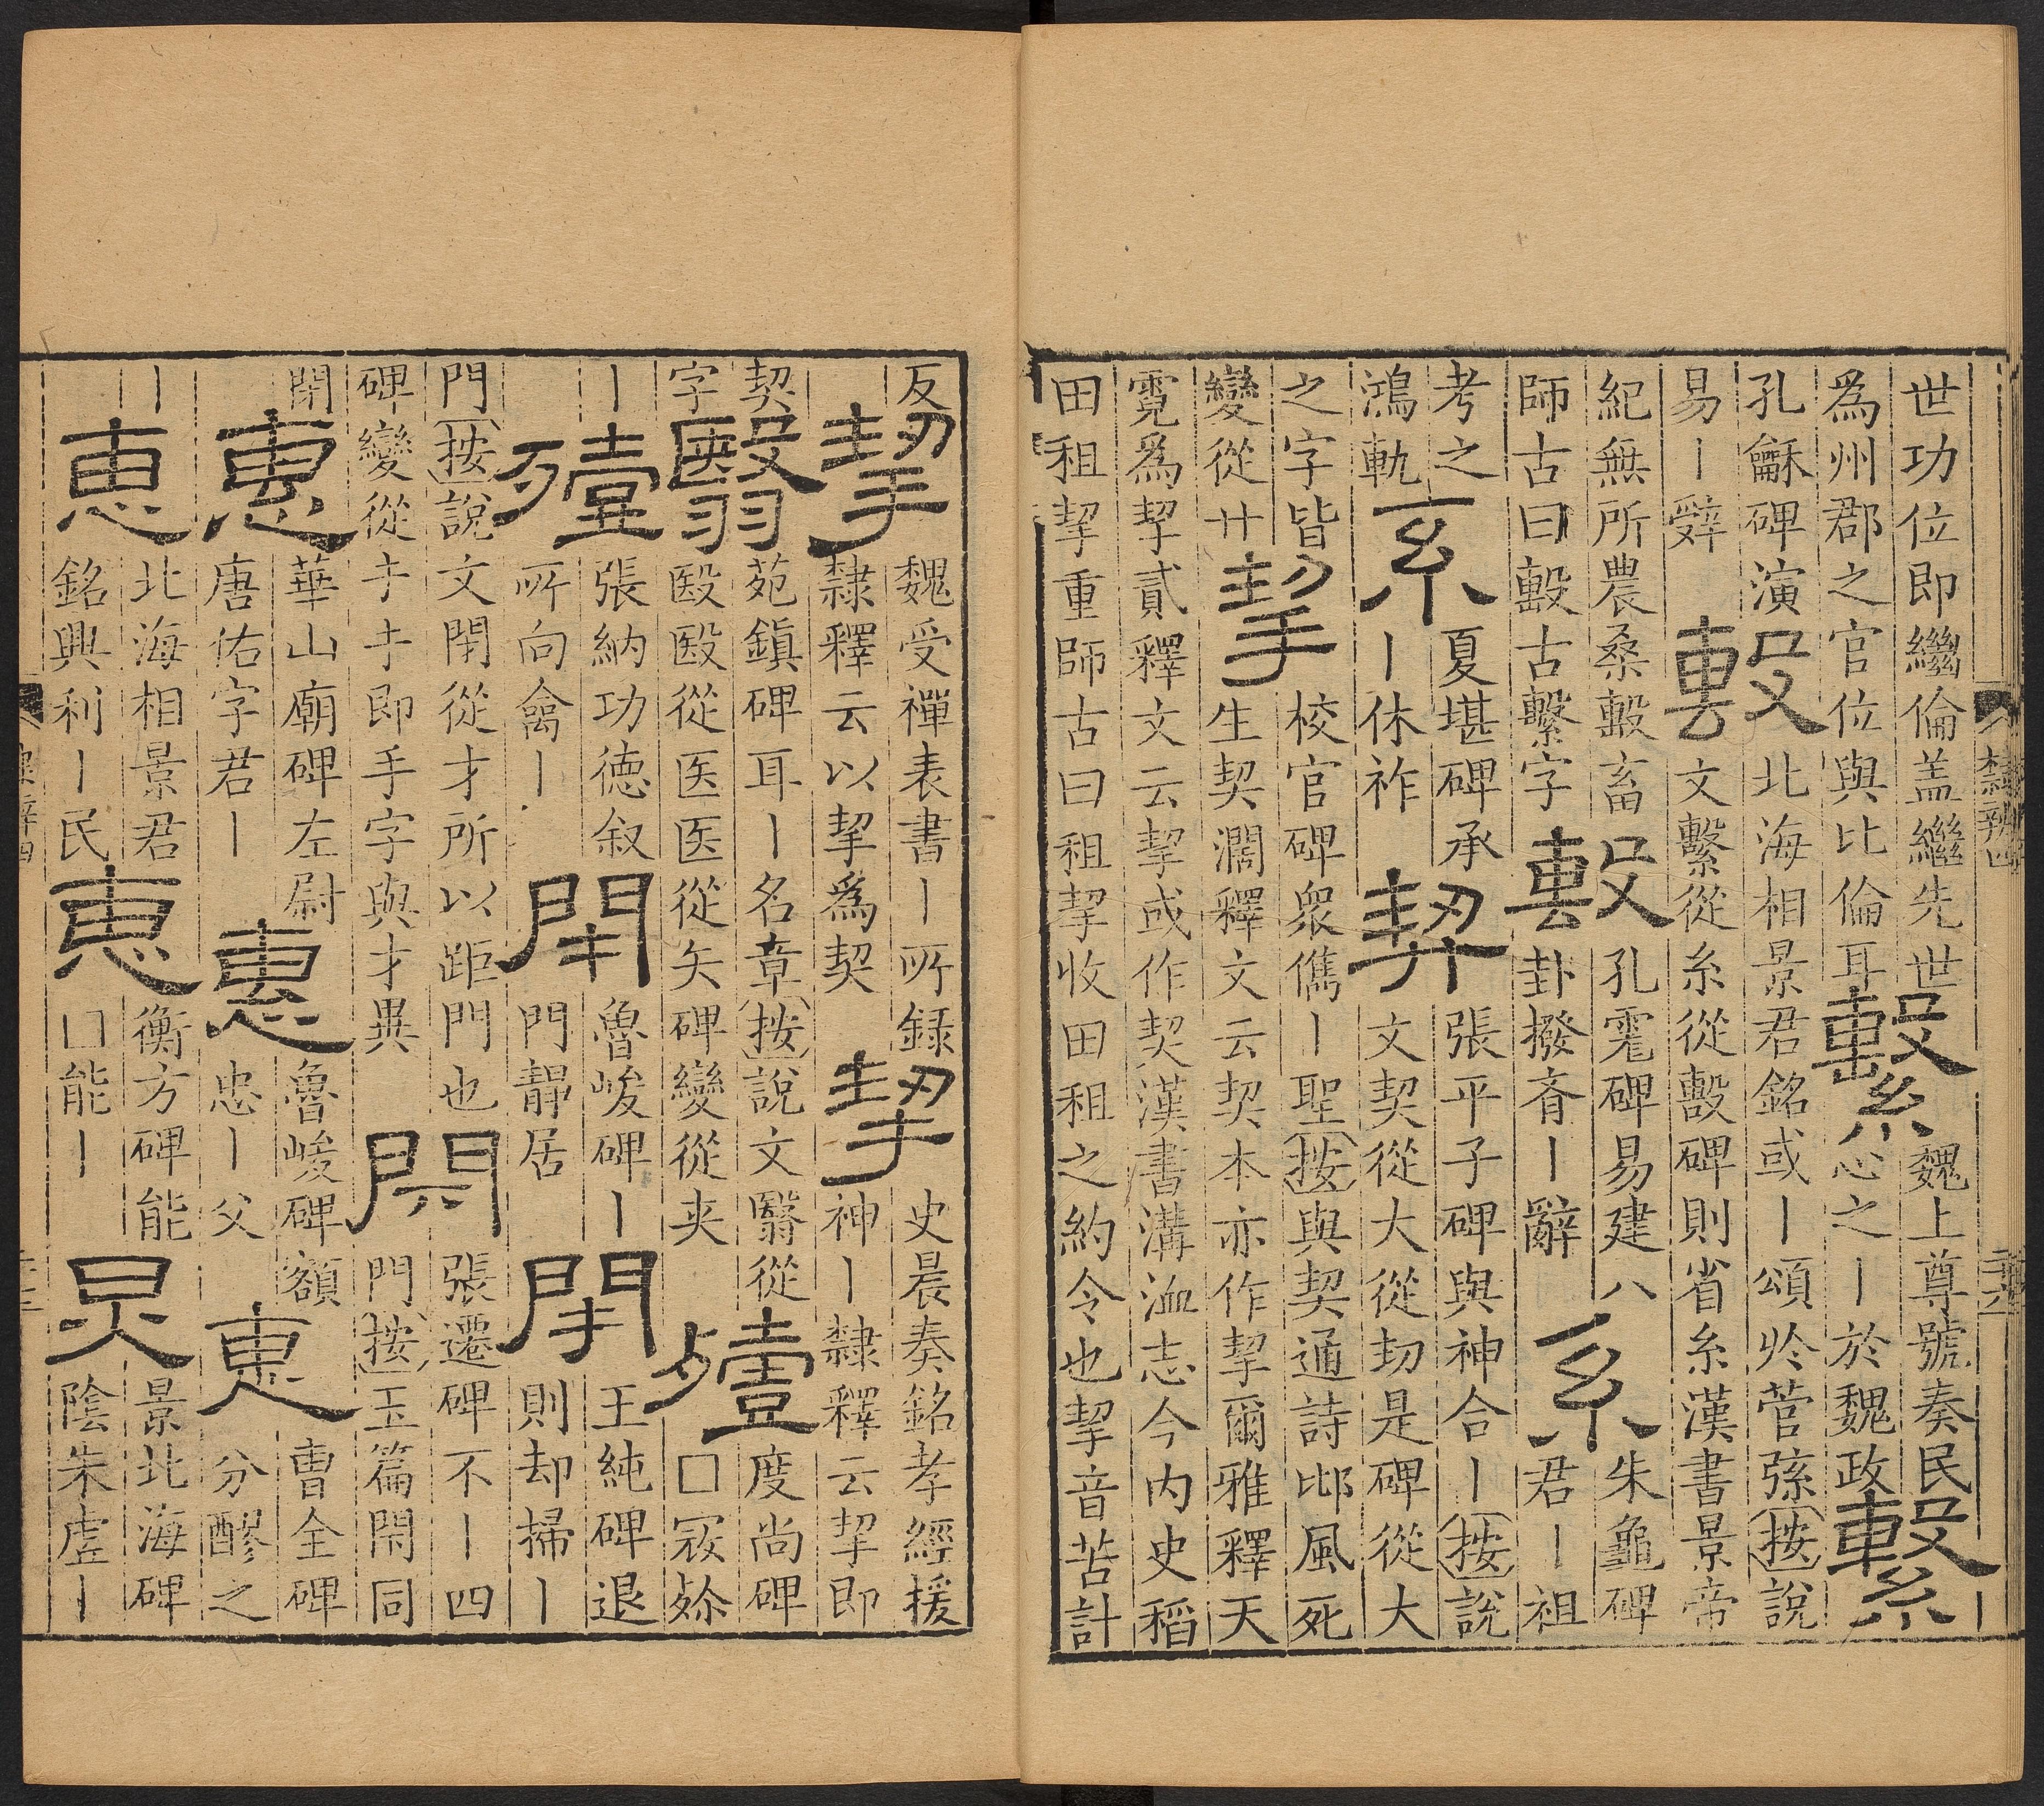 隸辨四 二十六
世功位即繼倫盖繼先世為州郡之官位與比倫耳繫魏上尊號奏民心之丨於魏政繫丨
孔龢碑演易丨辤毄北海相景君銘或丨頌於管弦按說文繫從糸從毄碑則省糸漢書景帝
紀無所農桑毄畜師古曰毄古繫字毄孔寵碑易建八卦撥斉丨辭系朱龜碑君丨祖
考之鴻軌系夏堪碑承丨休祚契張平子碑與神合丨按說文契從大從㓞是碑從大
之字皆變從廾挈校官碑衆儁丨聖按與契通詩邶風死生契濶釋文云契本亦作挈爾雅釋天
霓為挈貳釋文云挈或作契漢書溝洫志今內史稻田租挈重師古曰租挈收田租之約令也挈音苦計
反挈魏受禪表書丨所録隸釋云以挈為契挈史晨奏銘孝經援神丨隸釋云挈即
契字翳苑鎮碑耳丨名章按說文翳從殹殹從医医從矢碑變從夹殪度尚碑□寂殄
丨殪張納功德叙所向禽丨閇魯峻碑丨門靜居閇王純碑退則却掃丨
門按說文閉從才所以距門也碑變從扌扌即手字與才異閇張遷碑不丨四門按玉篇閇同
閉惠華山廟碑左尉唐佑字君丨惠魯峻碑額忠丨父惠曹全碑分醪之
丨惠北海相景君銘興利丨民惠衡方碑能□能丨炅景北海碑陰朱虛丨